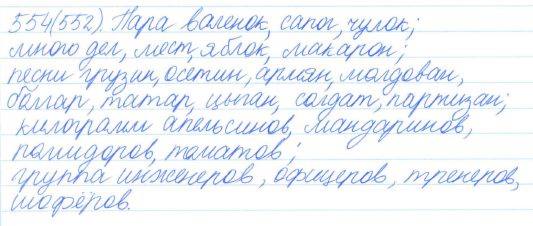 554(552). Пара валенок, сапог, чулок;
много дел, мест, яблок, макарон;
песни грузин, осетин, армян, молдован,
болгар, татар, цыган, солдат, партизан;
килограмм апельсинов, мандаринов,
помидоров, томатов;
группа инженеров, офицеров, тренеров,
шофёров.